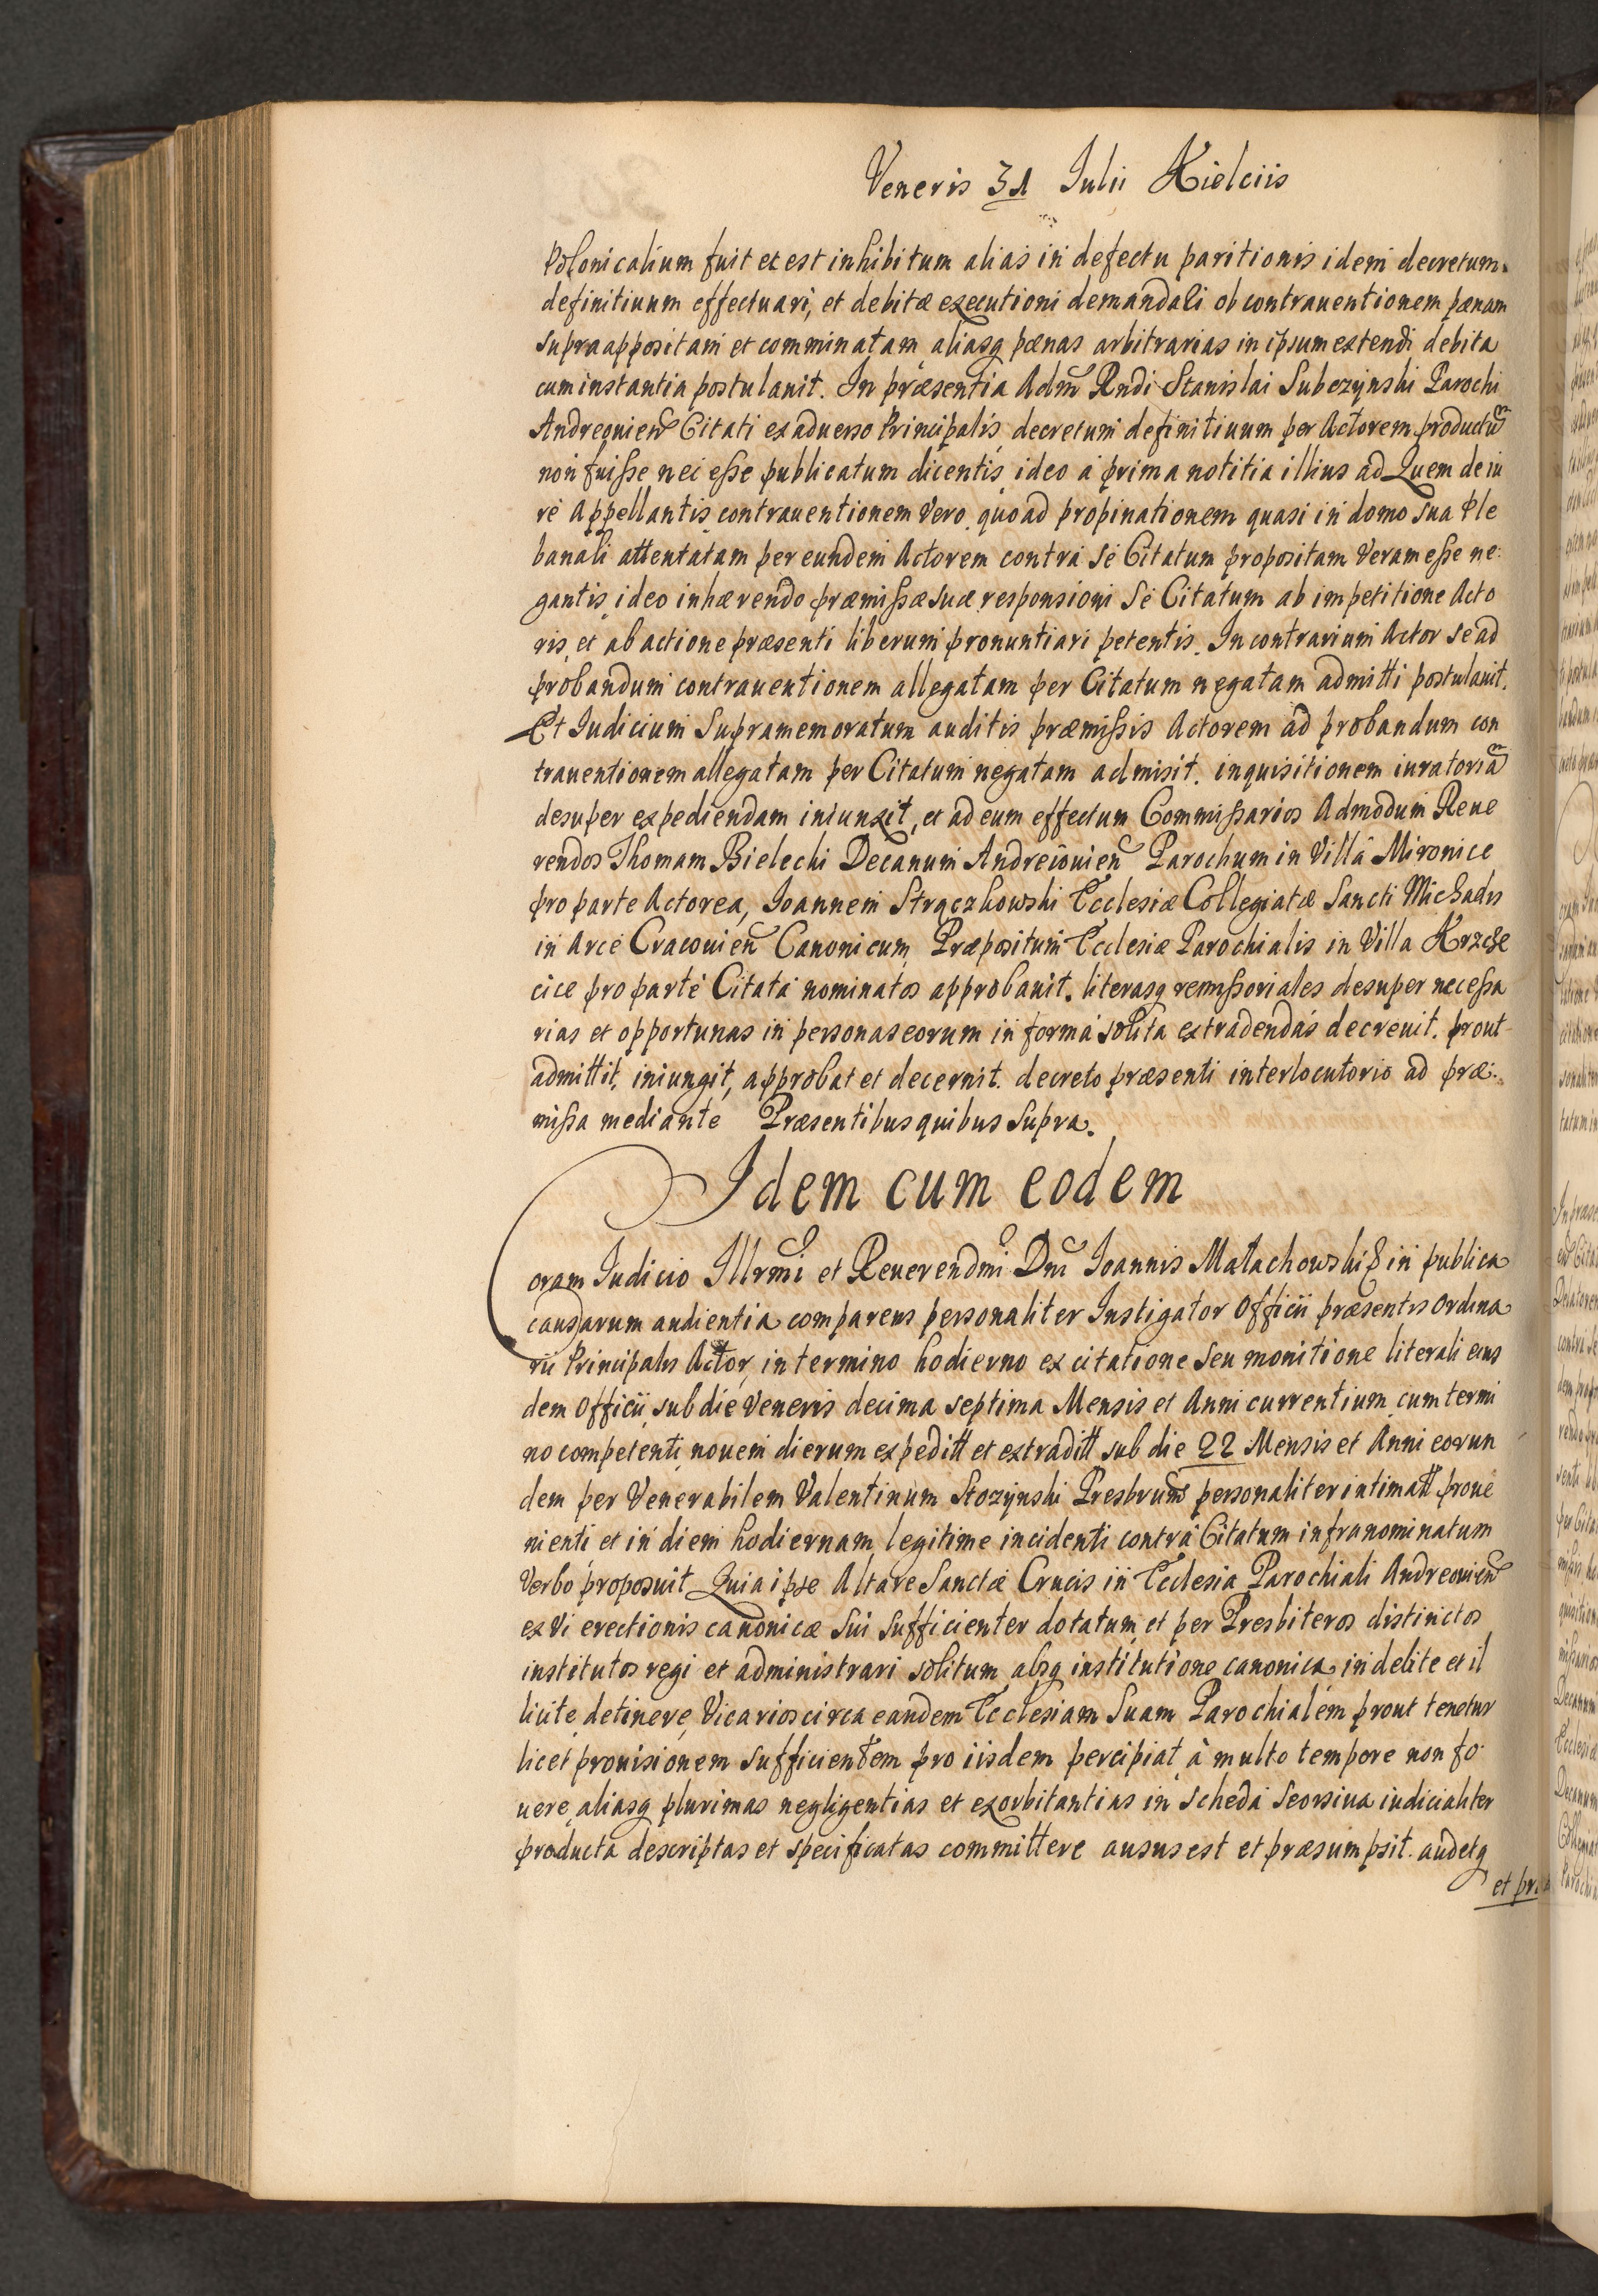 Veneris 31 Julii Kielciis
Polonicalium fuit et est inhibitum alias in defectu paritionis idem decretum
definitiuum effectuari, et debitæ executioni demandali ob contrauentionem pænam
supraappositam et comminatam aliasq pænas arbitrarias in ipsum extendi debita
cum instantia postulauit. In præsentia Adm Rndi Stanislai Subczynski Parochi
Andreouien Citati ex aduerso Principalis decretum definitiuum per Actorem productũ
non fuisse nec esse publicatum dicentis ideo a prima notitia illius ad Quem de iu
re Appellantis contrauentionem Vero quo ad propinationem quasi in domo sua Ple
banali attentatam per eundem Actorem contra se Citatum propositam Veram esse ne:
gantis ideo inhærendo præmissæ suæ responsioni Se Citatum ab impetitione Acto
ris, et ab actione præsenti liberum pronuntiari petentis. In contrarium Actor se ad
probandum contrauentionem allegatam per Citatum negatam admitti postulauit.
Et Iudicium Supramemoratum auditis præmissis Actorem ad probandum con
trauentionem allegatam per Citatum negatam admisit. inquisitionem iuratoriã
desuper expediendam iniunxit, et ad eum effectum Commissarios Admodum Reue
rendos Thomam Bielecki Decanum Andreiouien Parochum in Villa Mironice
pro parte Actorea, Ioannem Strączkowski Ecclesiæ Collegiatæ Sancti Michaelis
in Arce Cracouien Canonicum Præpositum Ecclesiæ Parochialis in Villa Krzcie
cice pro parte Citata nominatos approbauit. literasq remissoriales desuper necessa
rias et opportunas in personas eorum in forma solita extradendas decreuit. prout
admittit, iniungit, approbat et decernit. decreto præsenti interlocutorio ad præ:
missa mediante Præsentibus quibus Supra.
Idem cum eodem
Coram Iudicio Illrmi et Reuerendmi Dni Ioannis Małachowski & in publica
causarum audientia comparens personaliter Instigator Officii præsentis Ordina
rii Principalis Actor, in termino hodierno ex citatione seu monitione literali eius
dem Officii sub die Veneris decima septima Mensis et Anni currentium cum termi
no competenti nouem dierum expeditt et extraditt sub die 22 Mensis et Anni eorun
dem per Venerabilem Valentinum Stozynski Presbrum personaliter intimatt proue
nienti et in diem hodiernam legitime incidenti contra Citatum infranominatum
Verbo proposuit Quia ipse Altare Sanctæ Crucis in Ecclesia Parochiali Andreouien
ex Vi erectionis canonicæ sui sufficienter dotatum et per Presbiteros distinctos
institutos regi et administrari solitum absq institutione canonica indebite et il
licite detinere, Vicarios circa eandem Ecclesiam Suam Parochialem prout tenetur
licet prouisionem sufficientem pro iisdem percipiat à multo tempore non fo
uere aliasq plurimas negligentias et exorbitantias in scheda seorsiua iudicialiter
producta descriptas et specificatas committere ausus est et præsumpsit. audetq
et præ